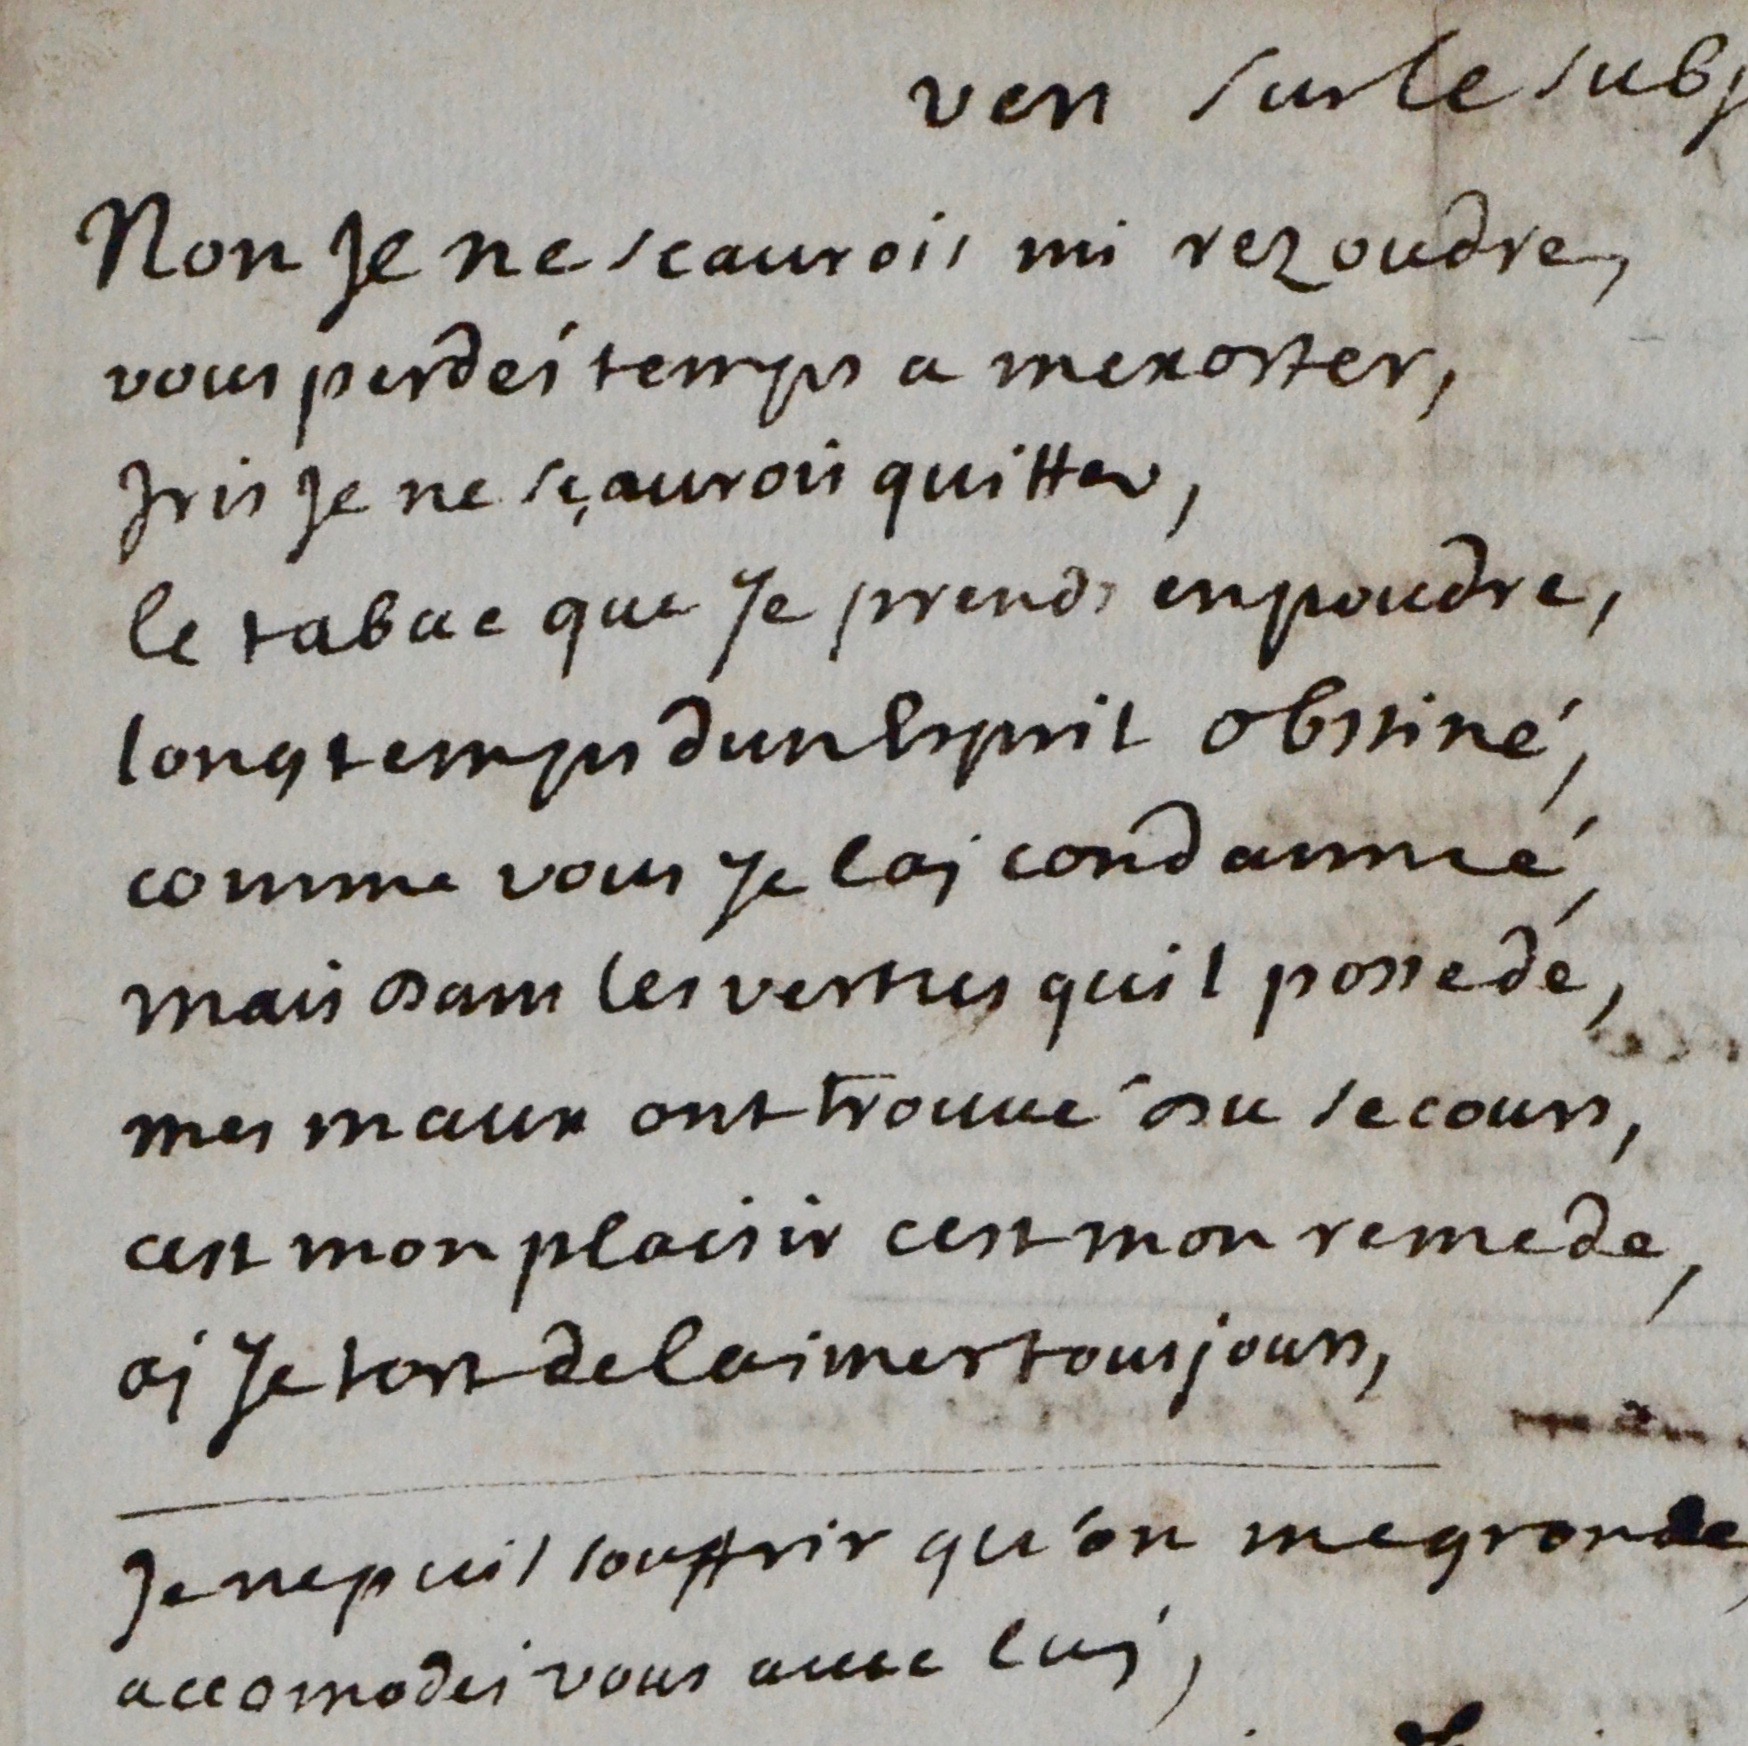 vers sur le subj
Non Je ne scaurois mi rezoudre,
vous perdés temps a mexorter,
Jris Je ne sçaurois quitter,
le tabac que Je prends en poudre,
longtemps dun Esprit obstiné,
comme vous Je laj condamné,
mais dans les vertus quil possedé,
mes maux ont trouué du secours,
cest mon plaisir cest mon remede,
aj Je tort de laimer tousjours,
Je ne puis souffrir qu'on me gronde,
accomodés vous auec luj,